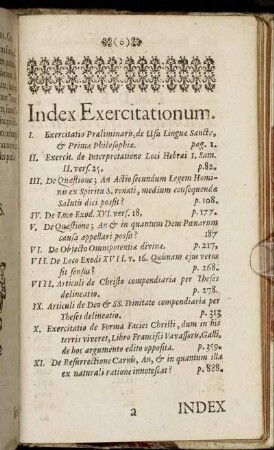 (o)
Index Exercitationum.
I. Exercitatio Præliminaris, de Usu Linguæ Sanctæ,
& Prima Philosophiæ. pag. 1.
II. Exercit. de Interpretatione Loci Hebræi 1. Sam.
II. vers. 25. p.82.
III. De Quæstione; An Actio secundum Legem Homi-
nis ex Spiritu S. renati, medium consequendæ
Salutis dici possit? p. 108.
IV. De Loco Exod. XVI. vers. 18, p. 177.
V. De Quæstione; An & in quantum Deus Pœnarum
causa appellari possit? 187
VI. De Objecto Omnipotentiæ divinæ. p. 217,
VII. De Loco Exodi XVIII. v. 16. Quinam ejus verus
sit sensus? p. 268.
VIII. Articuli de Christo compendiaria per Theses
delineatio. p. 278.
IX. Articuli de Deo & SS. Trinitate compendiaria per
Theses delineatio. p. 313
X. Exercitatio de Forma Faciei Christi, dum in his
terris viveret, Libro Francisci Vavassoris, Galli,
de hoc argumento edito opposita. p. 359.
XI. De Resurrectione Carnis, An, & in quantum illa
ex naturali ratione innotescat? p. 888.
a INDEX